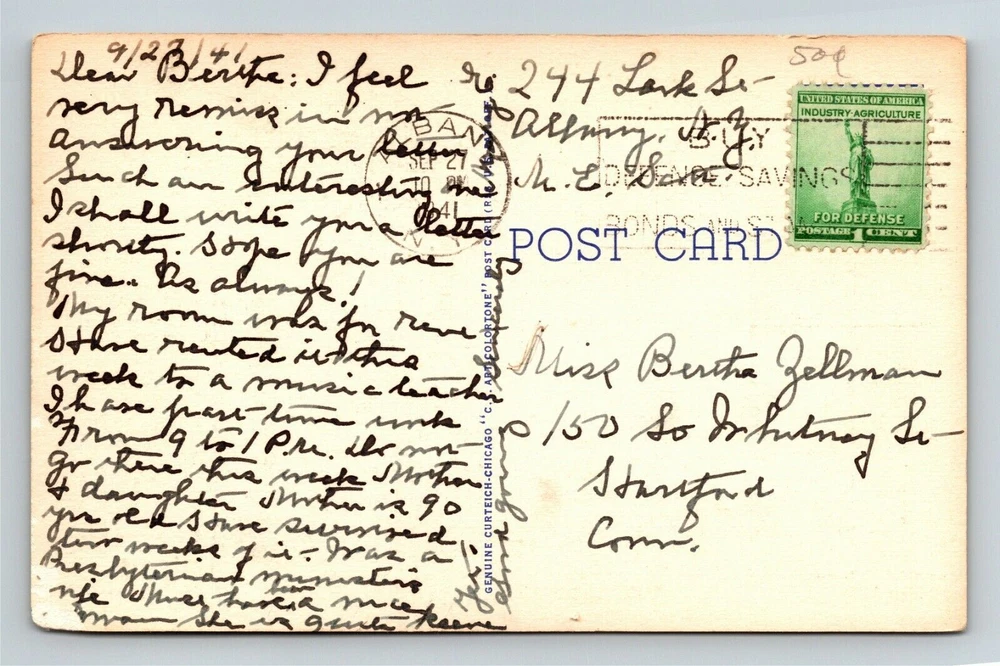 9/27/41
Dear Bertha: I feel
very remiss in not
answering your letter
Such an interesting one
I shall write you a letter
shortly. Hope you are
fine. As always!
My room was for
Have rented it this
week to a music teacher
I have part-time work
From 9 to 1 P.M. Do not
go there this week Mother
& daughter Mother is 90
yrs old Have survived
two weeks of it - Was a
Presbyterian minister's
wife Must have a nice
She is quite
Yes!
Sincerely
244 Lark St
Albany, N.Y.
M. E.
50¢
ALBANY
SEP 27
10 PM
41
N.Y.
BUY
DEFENSE SAVINGS
BONDS AND STAMPS
UNITED STATES OF AMERICA
INDUSTRY-AGRICULTURE
FOR DEFENSE
POSTAGE 1 CENT
POST CARD
GENUINE CURTEICH-CHICAGO "C.T. ART-COLORTONE" POST CARD
Miss Bertha Zellman
150 So Whitney St
Hartford
Conn.